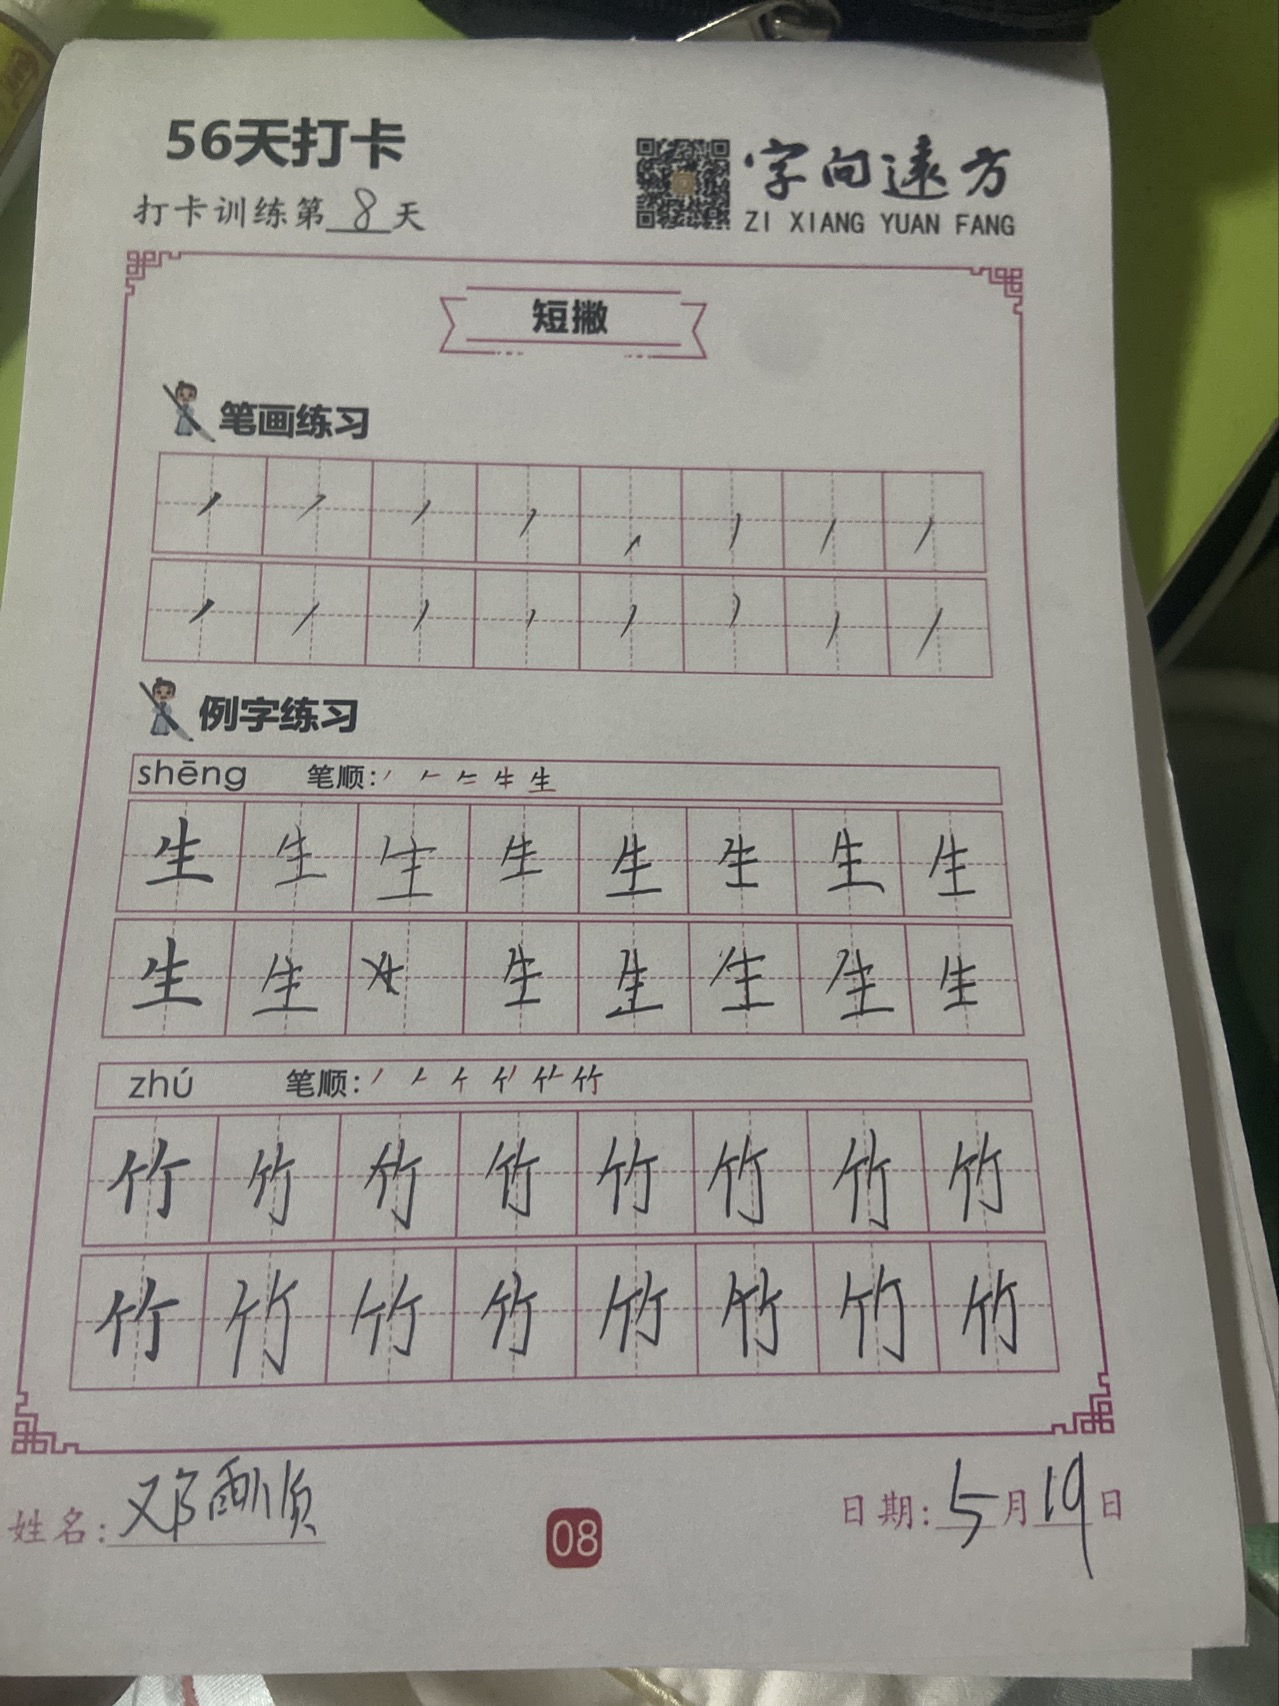 56天打卡
字向遠方
打卡训练第8天
ZI XIANG YUAN FANG
短撇
笔画练习
例字练习
shēng 笔顺:
生 生 生 生 生 生 生 生
生 生 生 生 生 生 生
zhú 笔顺:
竹 竹 竹 竹 竹 竹 竹 竹
竹 竹 竹 竹 竹 竹 竹 竹
姓名:邓雨顺
08
日期:5月19日